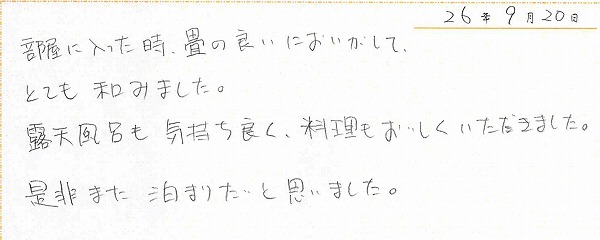 26年9月20日
部屋に入った時、畳の良いにおいがして、
とても和みました。
露天風呂も気持ち良く、料理もおいしくいただきました。
是非また泊まりたいと思いました。